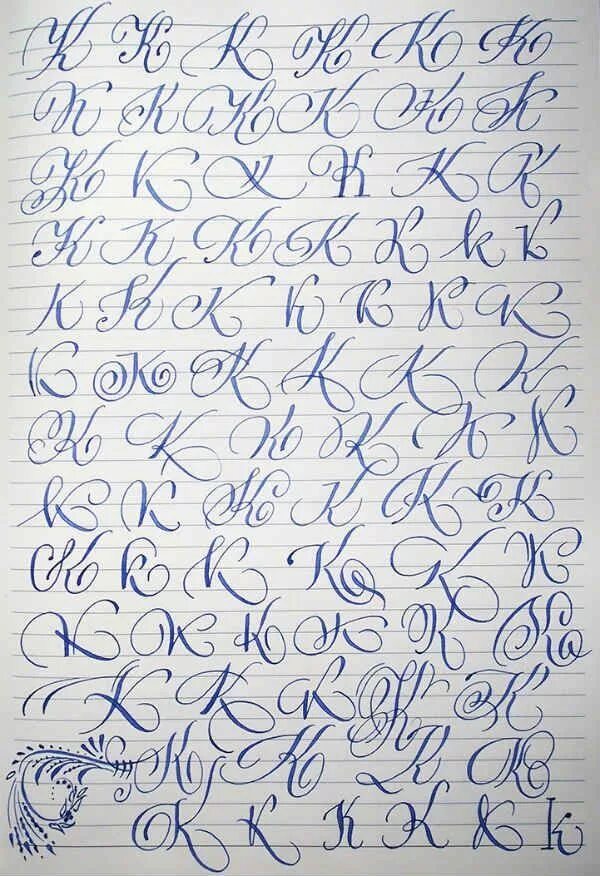 K K K K K K
K K K K K K
K K K K K K
K K K K K k K
K K K K K K K
K K K K K K
K K K K K K
K K K K K K
K K K K K K
K K K K K K
K K K K K
K K K K
K K K K K k